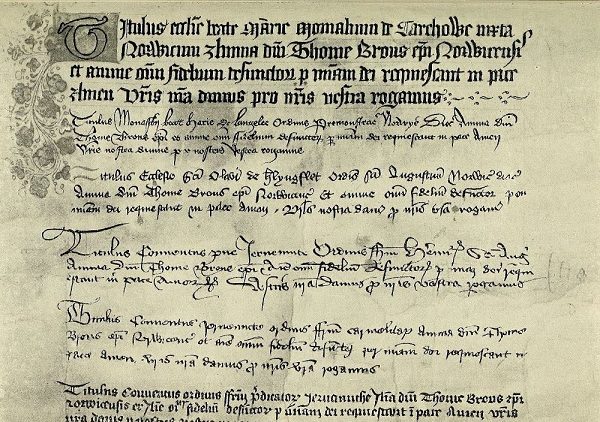 Titulus ecclie beate Marie monialium de Carehowe iuxta
Norwicum Anima dni Thome Brons epi Norwicensis
et anime omi fidelium defunctor p miam dei requiescant in pace
Amen Vris nra damus pro nris vestra rogamus
Titulus beate Marie de Langelee Ordinis Premonstraten Norwyc Dioc Anima dni
Thome Brons epi et anime omi fidelium defunctor p miam dei requiescant in pace Amen
Vris nostra damus p nostris vestra rogamus
Titulus Ecclesie Sci Olavi de Ordis Sci Augustini Norwic dioc
Anima dni Thome Brons epi Norwicens Et anime omi fidelium defunctor p
miam dei requiescant in pace Amen Vris nostra dam p nris vra rogam
Titulus Conventus Jernemute Ordinis ffrm Sci Aug
Anima dni Thome Brons epi omi fidelium defunctor p miam dei requi
escant in pace Amen Vestris nra damus p nris vestra rogamus
Titulus Conventus ordinis ffrm carmelitar Anima dni Thome
Brons epi Norwicens et aie omi fidelium defunctor per miam dei requiescant in
pace Amen vris nra damus p nris vra rogamus
Titulus Conventus ordinis ffrm predicator Jernemuthe Aia dni Thome Brons epi
norwicensis et aie fidelium defunctor p miam dei requiescant in pace Amen vris
nra damus